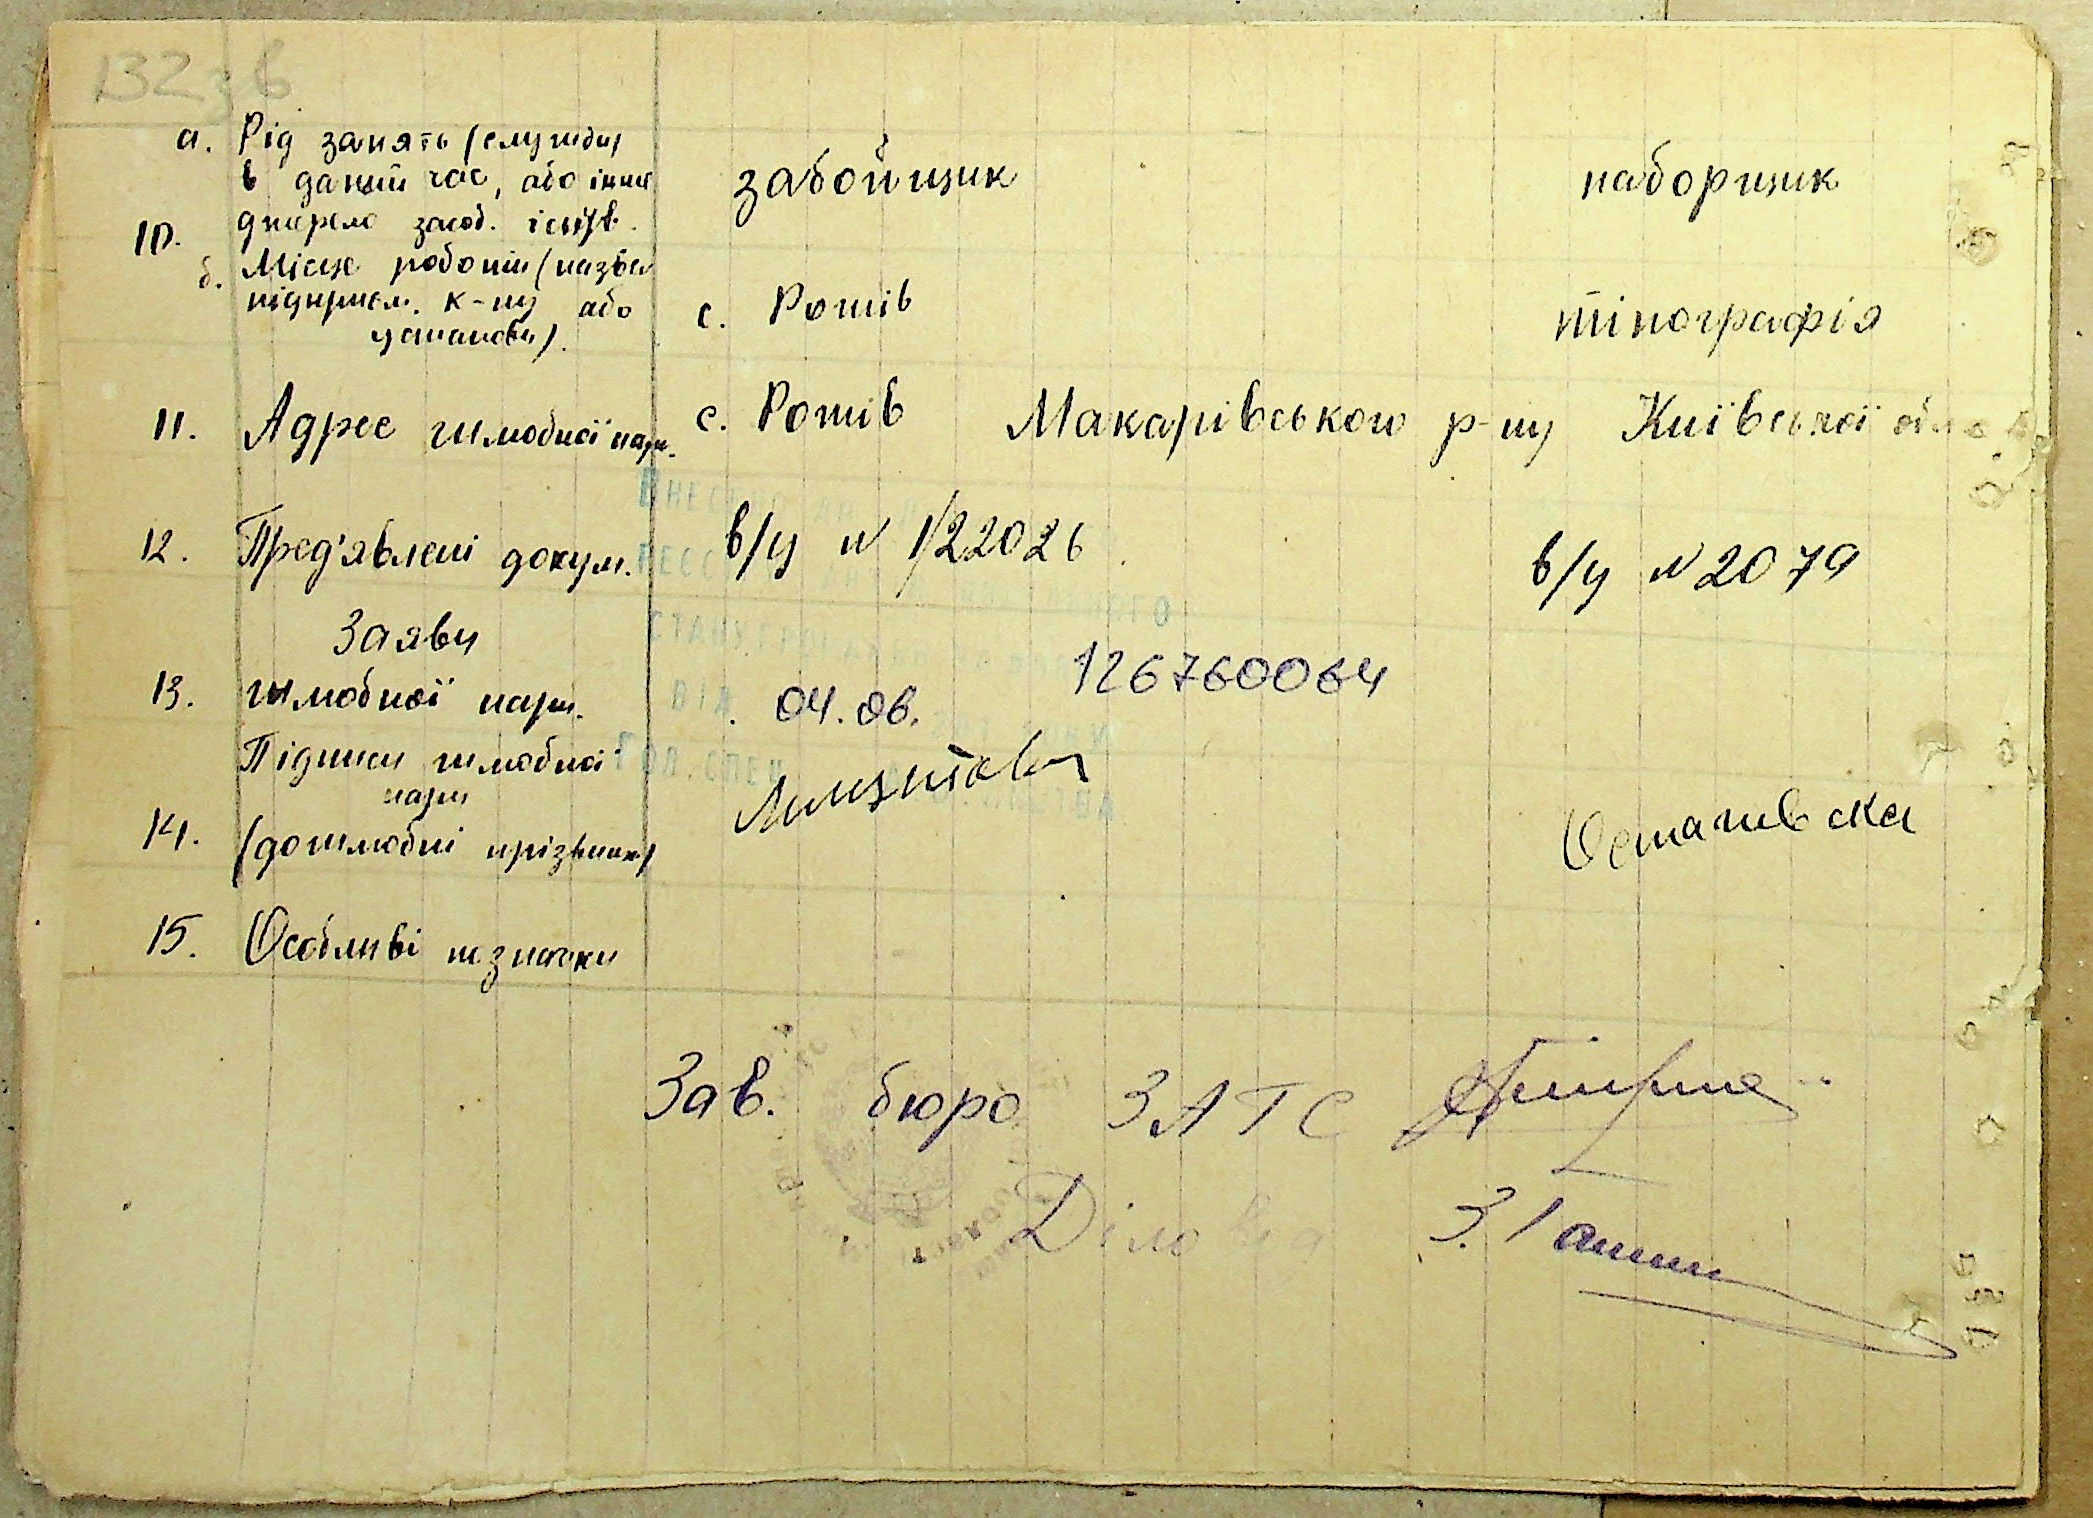 132зв
а. Рід занять (служби)
в даний час, або інше забойщик наборщик
10. джерело засоб. існув.
б. Місце роботи (назва
підприєм. к-пу або с. Ротів тіпографія
установи).
11. Адрес шлюбної пари. с. Ротів Макарівського р-ну Київської обл.
12. Пред'явлені докум. в/у № 1/22026 в/у № 2079
Заяви
13. шлюбної пари. 04.08. 126760064
Підписи шлюбної
пари
14. (дошлюбні прізвища) Осташевска
15. Особливі позначки
Зав. бюро ЗАГС
Діловод